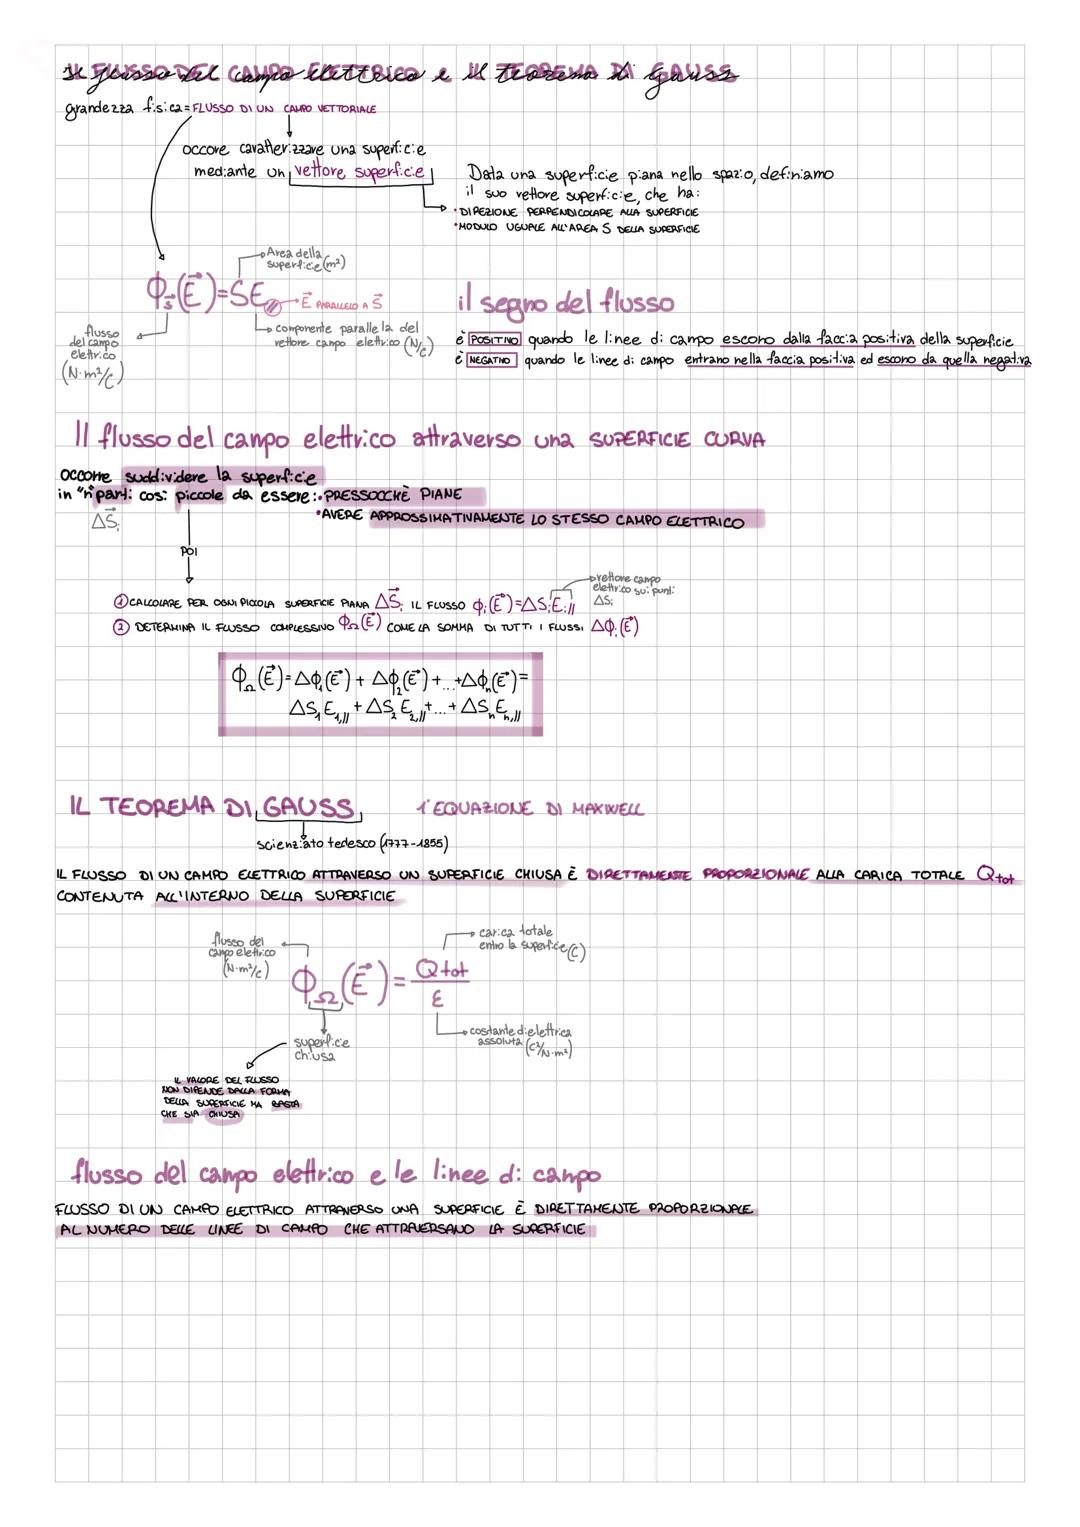 Il flusso del campo elettrico e il teorema di Gauss
grandezza fisica = FLUSSO DI UN CAMPO VETTORIALE
occore caratterizzare una superficie
mediante un vettore superficie
Data una superficie piana nello spazio, definiamo
il suo vettore superficie, che ha:
• DIREZIONE PERPENDICOLARE ALLA SUPERFICIE
• MODULO UGUALE ALL'AREA S DELLA SUPERFICIE
Area della
superficie (m²)
Φ_S⃗(E⃗)=SE_//
E⃗ PARALLELO A S⃗
componente parallela del
vettore campo elettrico (N/C)
flusso
del campo
elettrico
(N·m²/C)
il segno del flusso
è POSITIVO quando le linee di campo escono dalla faccia positiva della superficie
è NEGATIVO quando le linee di campo entrano nella faccia positiva ed escono da quella negativa
Il flusso del campo elettrico attraverso una SUPERFICIE CURVA
occorre suddividere la superficie
in "n" parti così piccole da essere: • PRESSOCCHÈ PIANE
• AVERE APPROSSIMATIVAMENTE LO STESSO CAMPO ELETTRICO
ΔS⃗ᵢ
POI
vettore campo
elettrico sui punti
ΔSᵢ
① CALCOLARE PER OGNI PICCOLA SUPERFICIE PIANA ΔS⃗ᵢ IL FLUSSO Φᵢ(E⃗)=ΔSᵢEᵢ//
② DETERMINA IL FLUSSO COMPLESSIVO Φ_Ω(E⃗) COME LA SOMMA DI TUTTI I FLUSSI ΔΦᵢ(E⃗)
Φ_Ω(E⃗)=ΔΦ₁(E⃗)+ΔΦ₂(E⃗)+...+ΔΦₙ(E⃗)=
ΔS₁E₁,// + ΔS₂E₂,// +...+ ΔSₙEₙ,//
IL TEOREMA DI GAUSS 1ª EQUAZIONE DI MAXWELL
scienziato tedesco (1777-1855)
IL FLUSSO DI UN CAMPO ELETTRICO ATTRAVERSO UN SUPERFICIE CHIUSA È DIRETTAMENTE PROPORZIONALE ALLA CARICA TOTALE Qtot
CONTENUTA ALL'INTERNO DELLA SUPERFICIE
flusso del
campo elettrico
(N·m²/C)
carica totale
entro la superficie (C)
Φ_Ω(E⃗)=Qtot/ε
costante dielettrica
assoluta (C²/N·m²)
superficie
chiusa
IL VALORE DEL FLUSSO
NON DIPENDE DALLA FORMA
DELLA SUPERFICIE MA BASTA
CHE SIA CHIUSA
flusso del campo elettrico e le linee di campo
FLUSSO DI UN CAMPO ELETTRICO ATTRAVERSO UNA SUPERFICIE È DIRETTAMENTE PROPORZIONALE
AL NUMERO DELLE LINEE DI CAMPO CHE ATTRAVERSANO LA SUPERFICIE